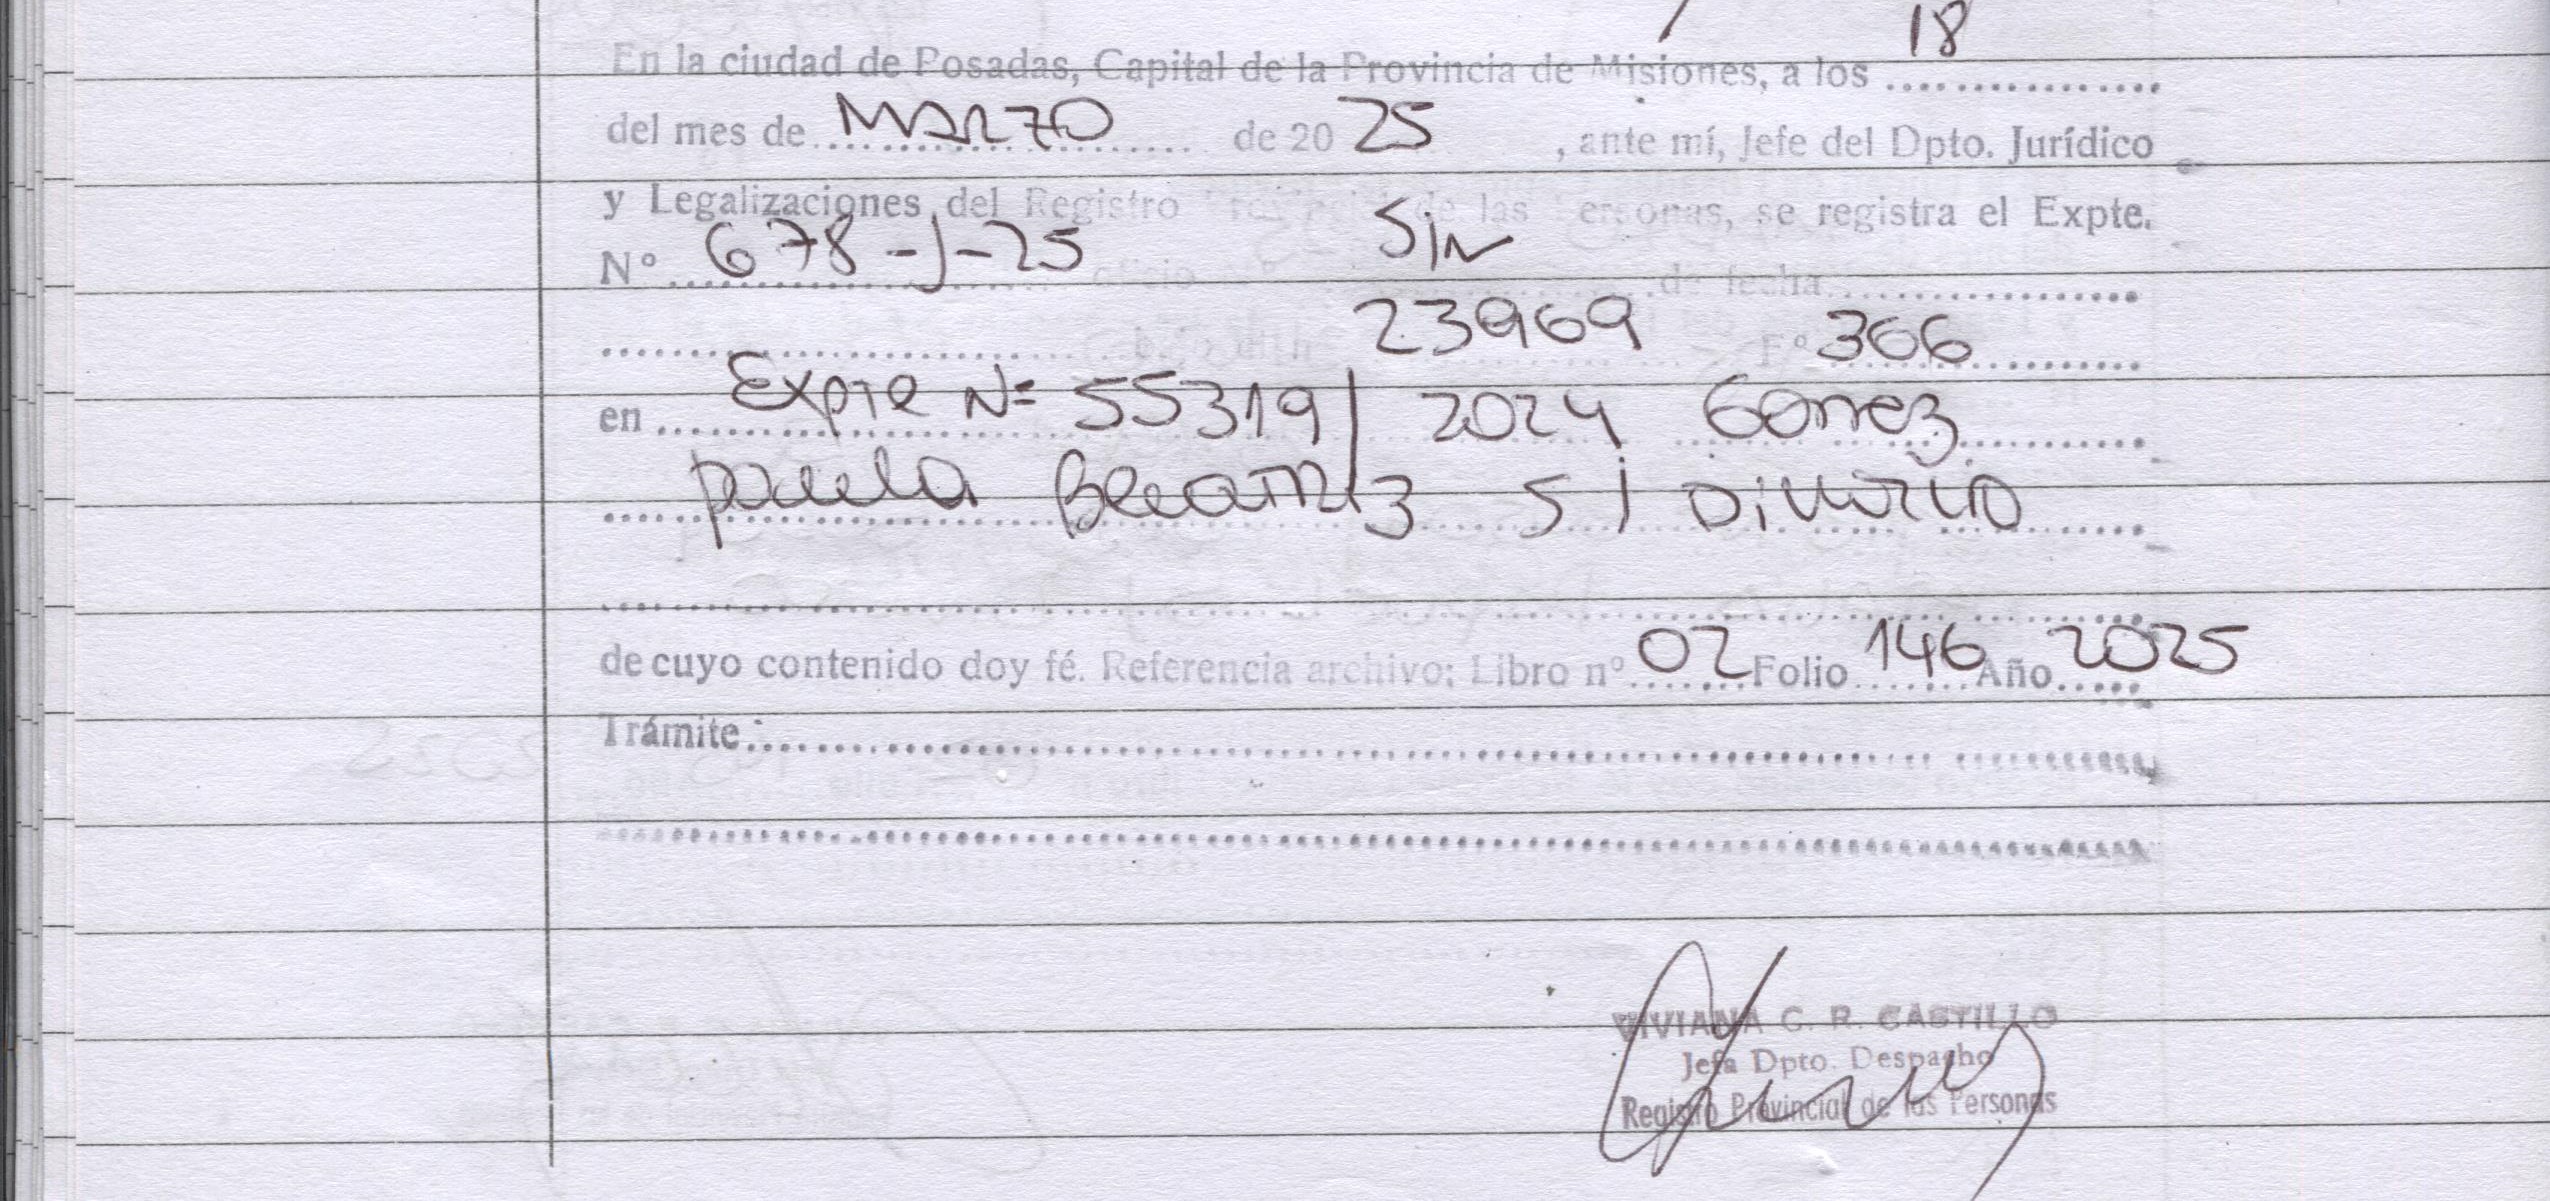 En la ciudad de Posadas, Capital de la Provincia de Misiones, a los 18
del mes de Marzo de 20 25, ante mí, Jefe del Dpto. Jurídico
y Legalizaciones del Registro de las Personas, se registra el Expte.
Nº 678-J-25 oficio S/N de fecha
23969 Fº 366
en Expte Nº 55319/2024 Gomez
Paula Beatriz S/ Divorcio
de cuyo contenido doy fé. Referencia archivo: Libro nº 02 Folio 146 Año 2025
Trámite:
VIVIANA C. R. CASTILLO
Jefa Dpto. Despacho
Registro Provincial de las Personas